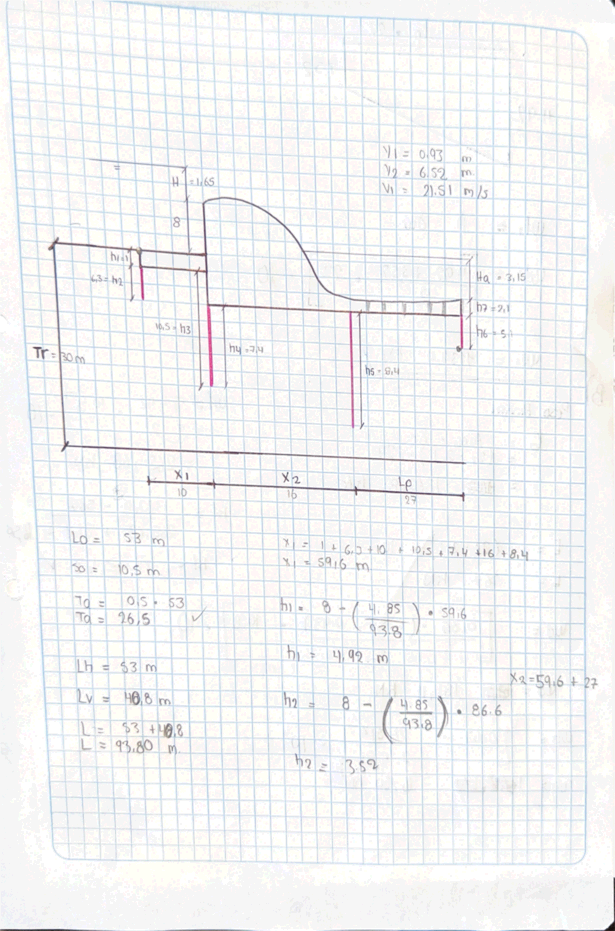 Y1 = 0.93 m
Y2 = 6.52 m
V1 = 21.51 m/s
H = 1,65
8
h1=1
6,3 = h2
Ha = 3,15
h7 = 2,1
h6 = 5,1
10,5 = h3
h4 = 7,4
h5 = 8,4
Tr = 30m
X1
10
X2
16
Lp
27
Lo = 53 m
so = 10,5 m
Ta = 0,5 · 53
Ta = 26,5 ✓
Lh = 53 m
Lv = 40,8 m
L = 53 + 40,8
L = 93,80 m
x1 = 1 + 6,3 + 10 + 10,5 + 7,4 + 16 + 8,4
x1 = 59,6 m
h1 = 8 - (4.85/93.8) · 59,6
h1 = 4,92 m
x2 = 59.6 + 27
h2 = 8 - (4.85/93.8) · 86.6
h2 = 3.52